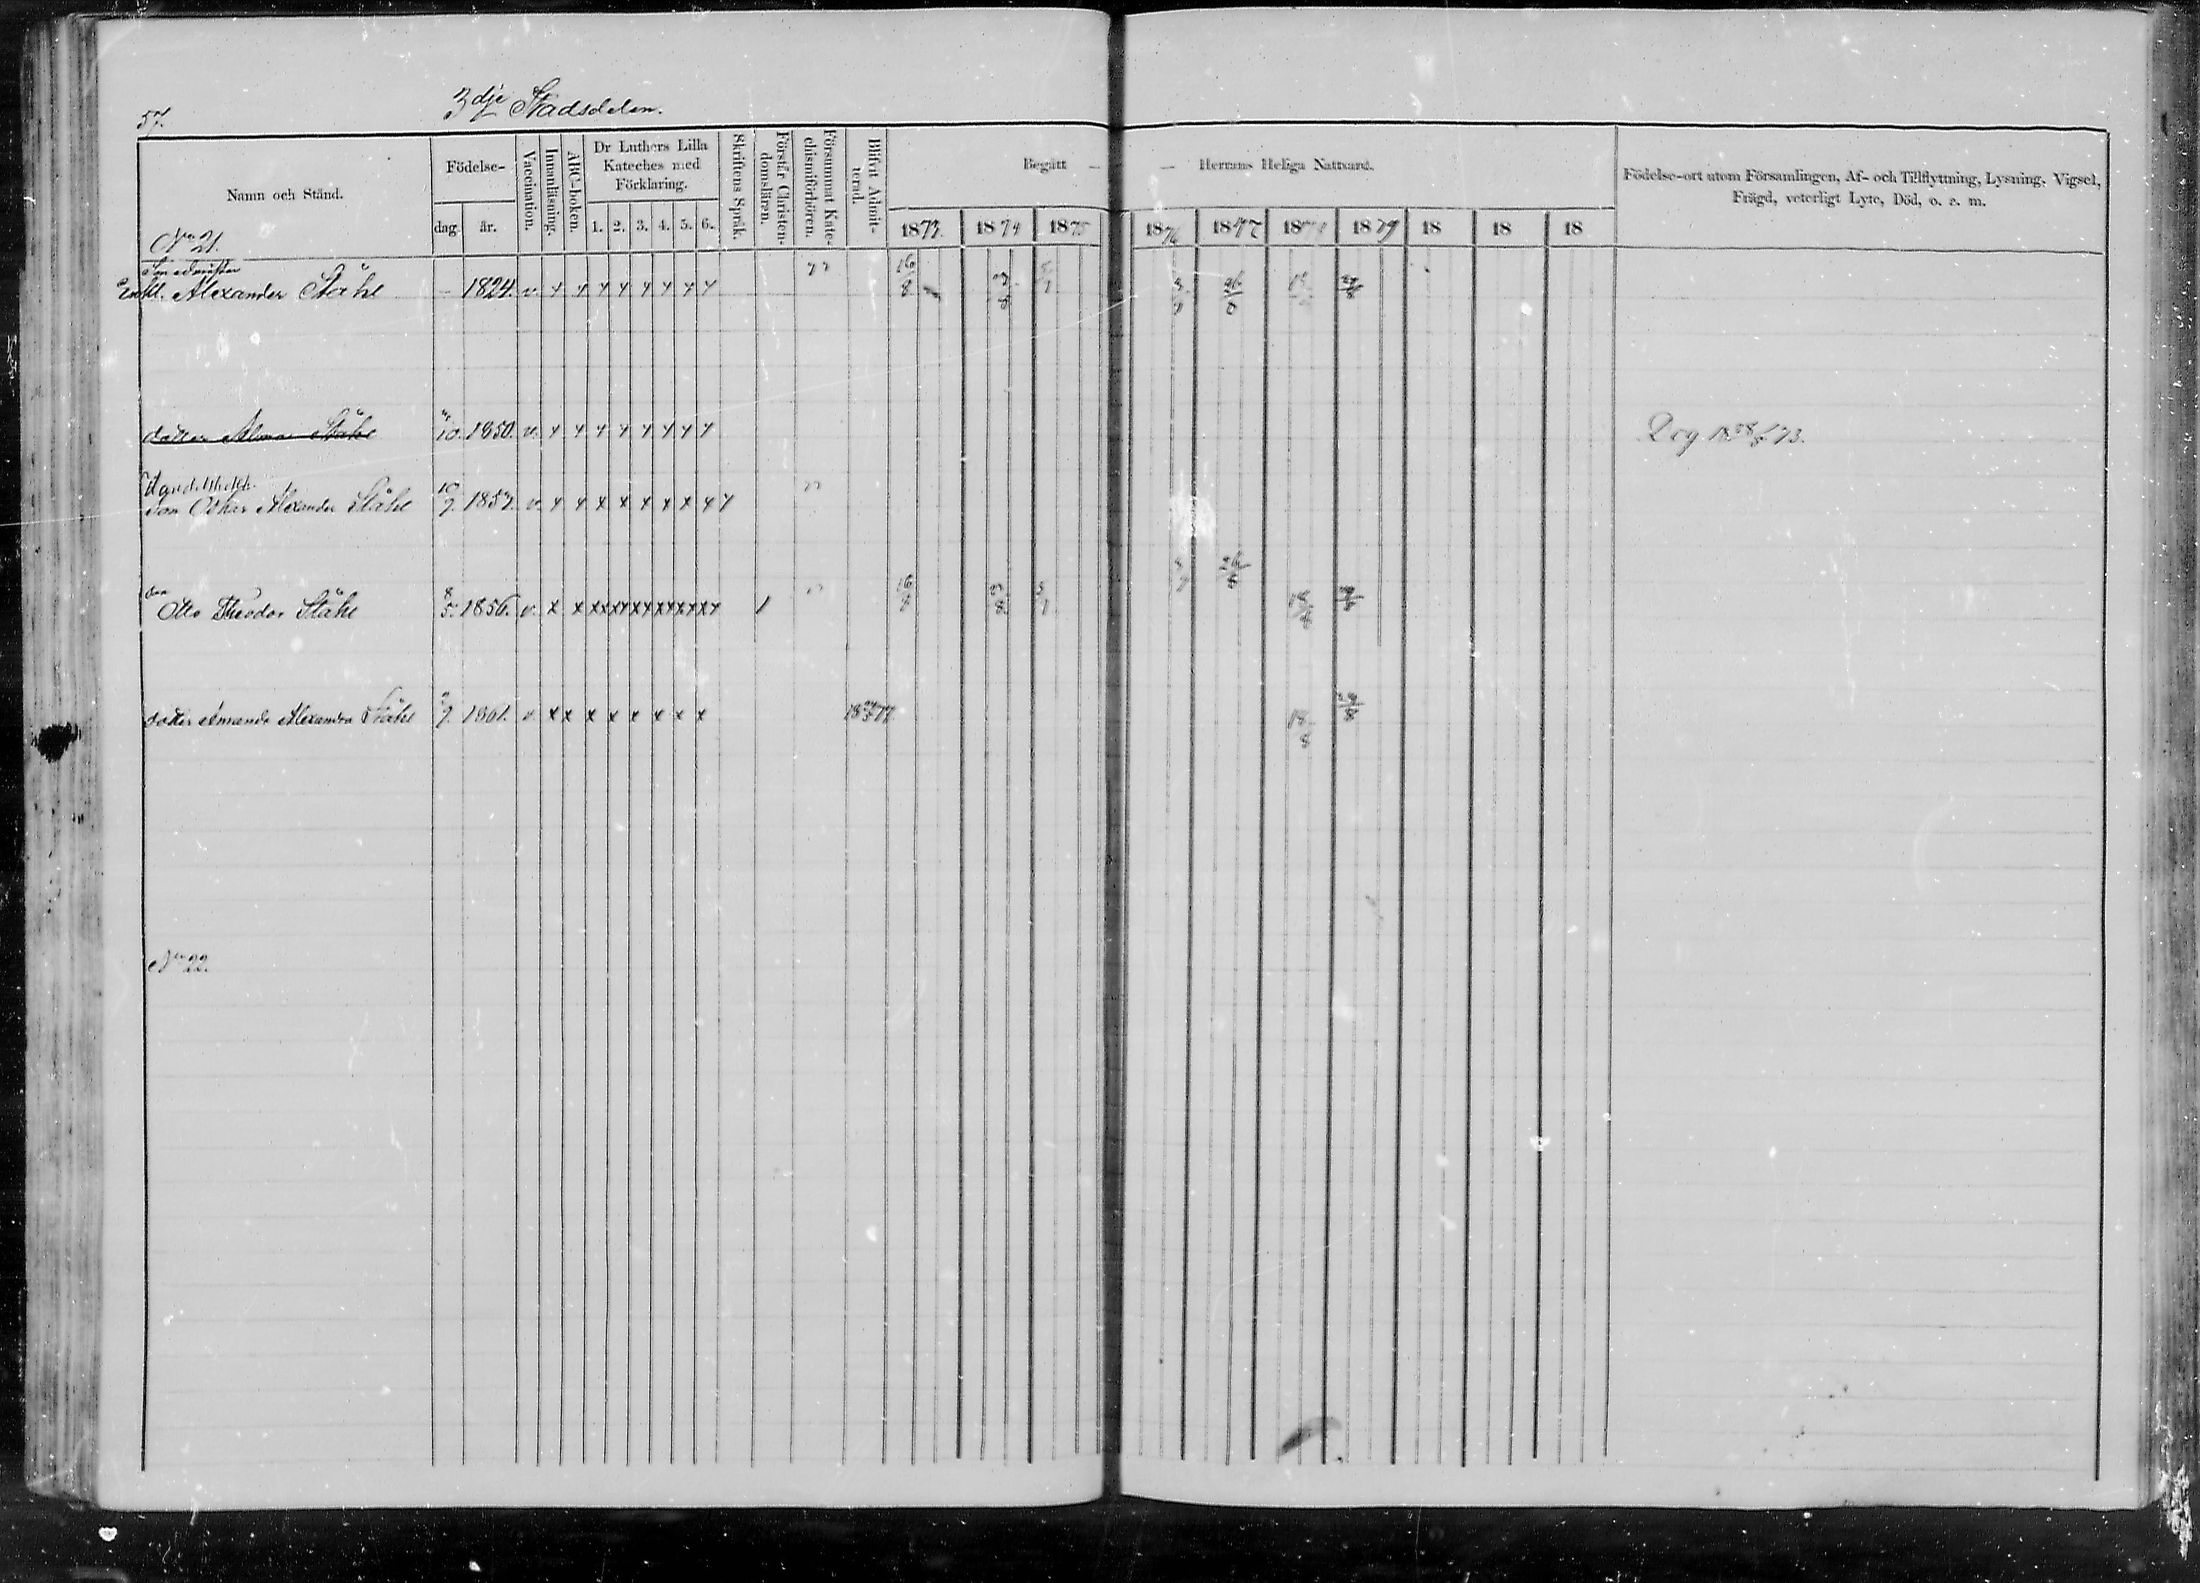 57.
3dje Stadsdelen.
Namn och Stånd.
Födelse-
dag.
år.
Vaccination.
Innanläsning.
ABC-boken.
Dr Luthers Lilla
Kateches med
Förklaring.
1. 2. 3. 4. 5. 6.
Skriftens Språk.
Förstår Christen-
domsläran.
Försummat Kate-
chismiförhören.
Blifvit Admit-
terad.
Begått — — Herrans Heliga Nattvard.
1873. 1874 1875 1876 1877 1878 1879 18 18 18
Födelse-ort utom Församlingen, Af- och Tillflyttning, Lysning, Vigsel,
Frägd, veterligt Lyte, Död, o. s. m.
No 21.
Enkl. Alexander Ståhl 1824. v. x x x x x x x x
16/8 5/7 26/8 18
dotter Alma Ståhl 10. 1850. v. x x x x x x x x
73.
Son Oskar Alexander Ståhl 10/7. 1851. v. x x x x x x x x x
son
Otto Theodor Ståhl 8/5. 1856. v. x x x x x x x x x x x x x x 1
16/8 5/7 26/8 18/8
dotter Amanda Alexandra Ståhl 7. 1861. v. x x x x x x x x 77
18/8
No 22.